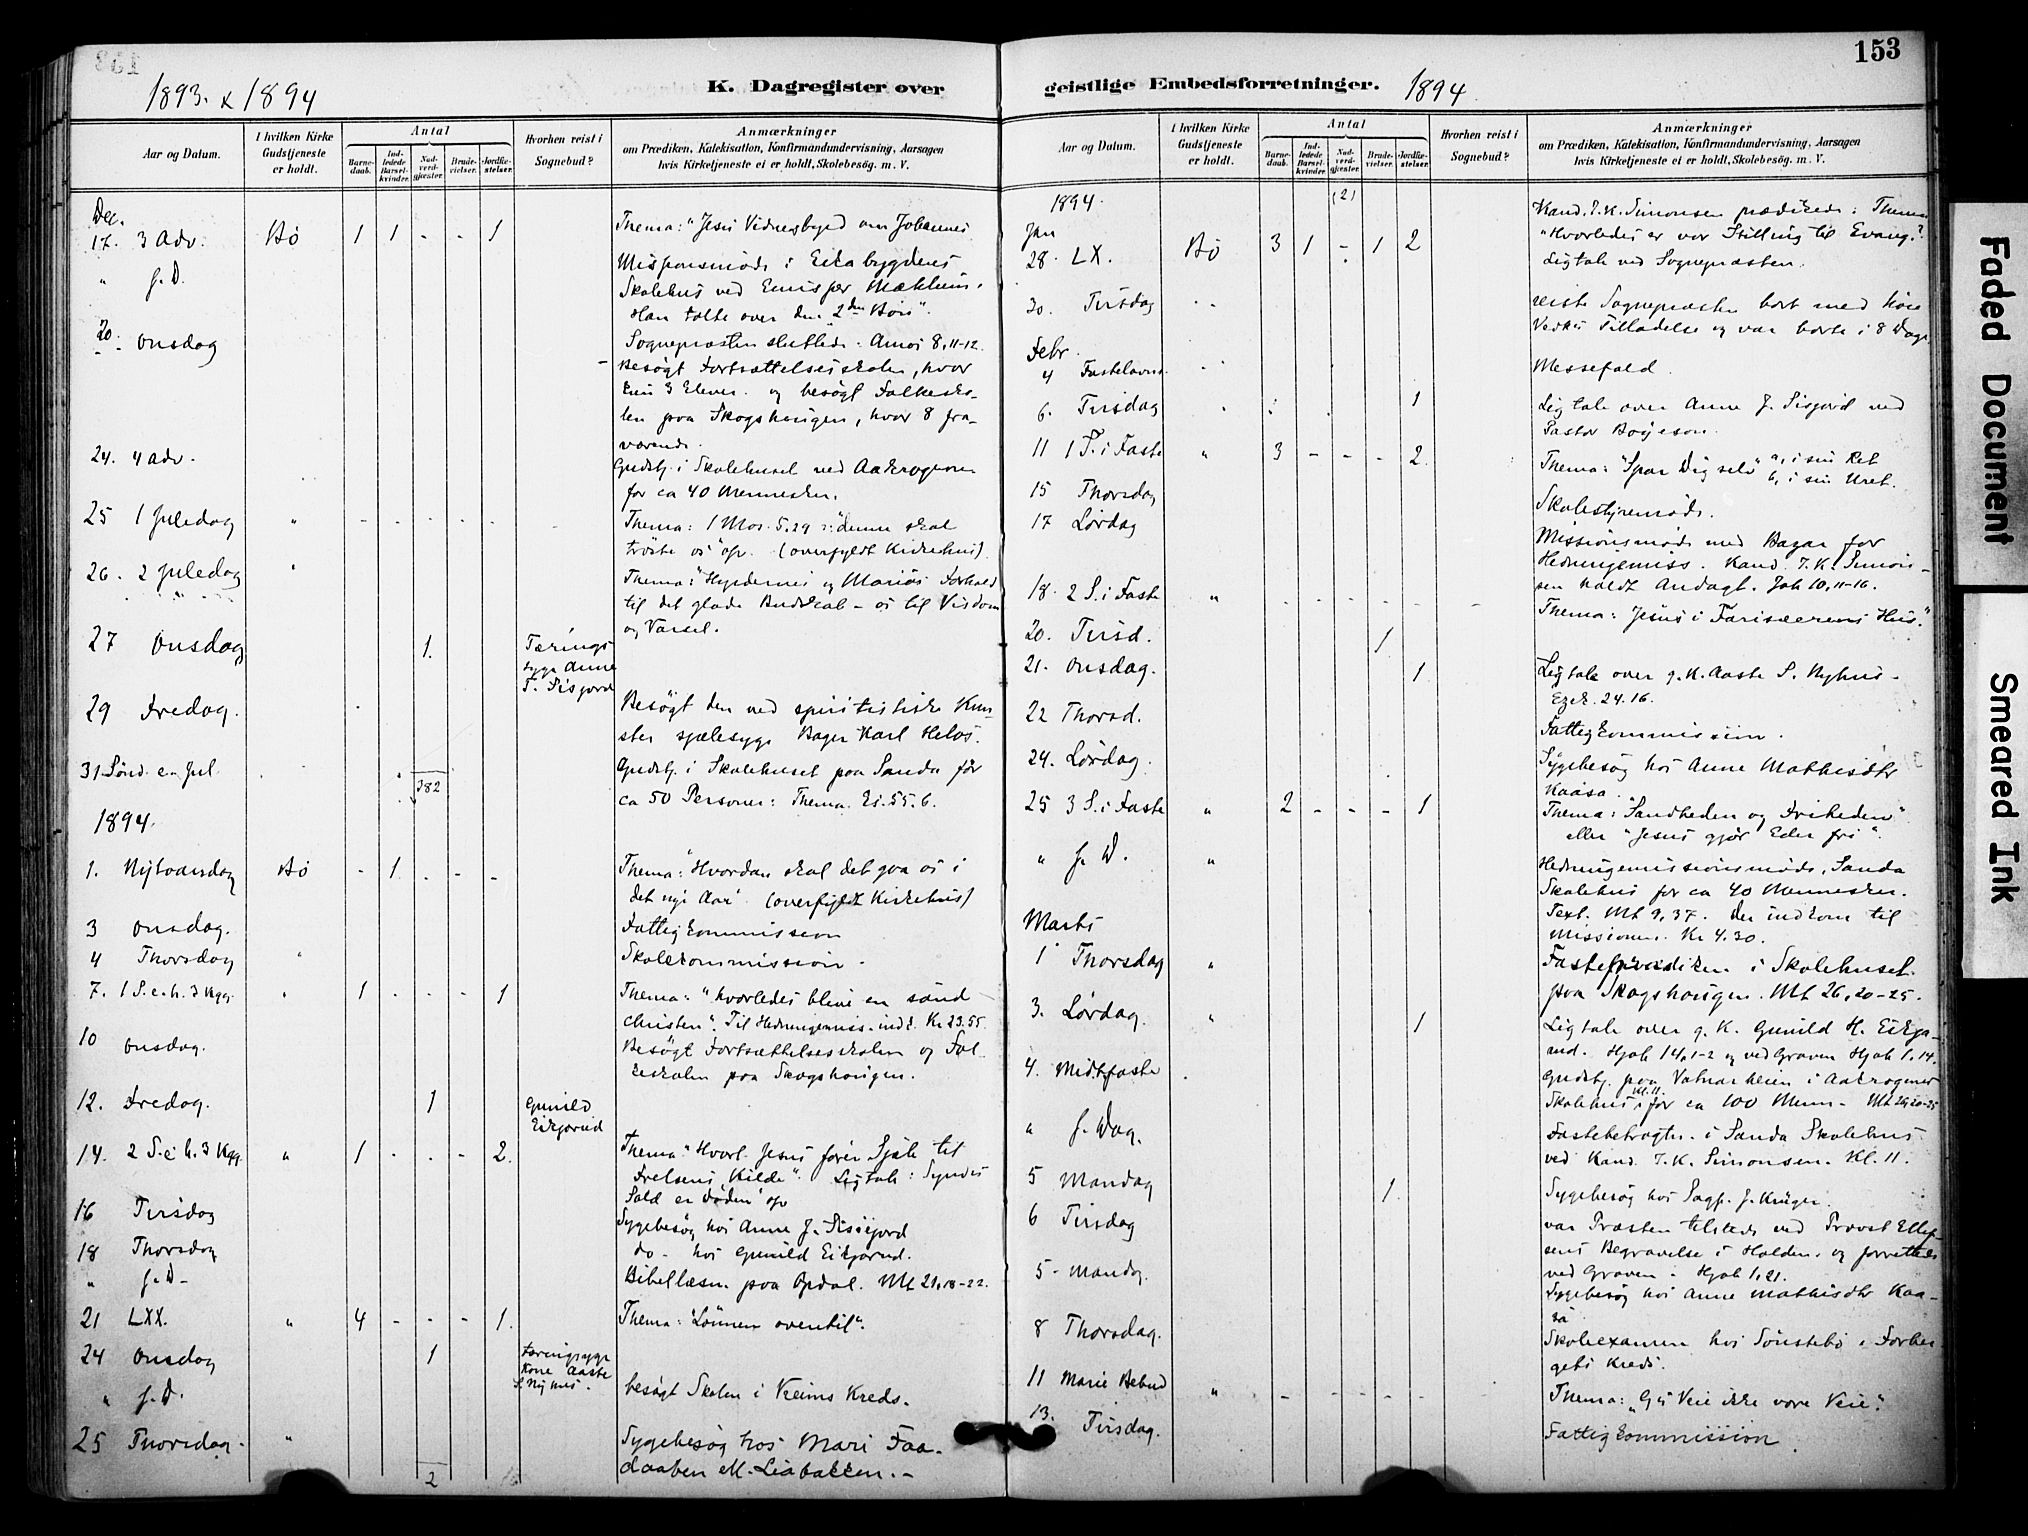 153
1893. & 1894
K. Dagregister over
Aar og Datum.
I hvilken Kirke Gudstjeneste er holdt.
Antal
Barnedaab.
Indledede Barselkvinder.
Nadverdgjæster.
Brudevielser.
Jordfæstelser.
Hvorhen reist i Sognebud?
Anmærkninger
om Prædiken, Katekisation, Konfirmandundervisning, Aarsagen
hvis Kirketjeneste ei er holdt, Skolebesøg. m. V.
Dec.
17. 3 Adv. Bø 1 1 - - 1 Thema: "Jesu Vidnesbyrd om Johannes
" s. D. Missionsmøde i Eikabygdens
Skolehus ved Emissær
Han talte over den "2den Bøn".
Sognepræsten sluttede. Amos 8,11-12.
20. Onsdag Besøgt Fortsættelsesskolen, hvor
kun 3 Elever og besøgt Folkesko-
len paa Skogshaugen, hvor 8 fra-
værende.
24. 4 Adv. Gudstj. i Skolehuset ved
for ca 40 Mennesker.
25 1 Juledag " - - - - - Thema: 1 Mos. 5.29 : "denne skal
trøste os" osv. (overfyldt Kirkehus)
26. 2 Juledag " Thema: "Hyrdernes og Marias Forhold
til det glade Budskab - os til Visdom
og Varsel.
27 Onsdag 1. Tærings
syge Anne
29 Fredag. Besøgt den ved spiritistiske Kun-
ster sjælesyge Bager Karl
31 Sønd. e. Jul. 382 Gudstj. i Skolehuset paa Sanda for
ca 50 Personer: Thema. Es. 55.6.
1894.
1. Nytaarsdag Bø - 1 - - - Thema: "Hvordan skal det gaa os i
det nye Aar" (overfyldt Kirkehus)
3 Onsdag. Fattigkommission
4 Thorsdag " Skolekommission.
7. 1 S. e. h. 3 Kgg. " 1 - - - 1 Thema: "hvorledes blive en sand
christen". Til Hedningemiss. indk. Kr 23.55.
10 Onsdag. Besøgt Fortsættelsesskolen og Fol-
keskolen paa Skogshaugen.
12. Fredag. 1 Gunild
Eikjarud
14. 2 S. e. h. 3 Kgg. " 1 - - - 2. Thema: "Hvorl. Jesus fører Sjæle til
Frelsens Kilde". Ligtale: Syndes
Sold er Døden osv
16 Tirsdag Sygebesøg hos Anne J.
18 Thorsdag do - hos Gunild Eikjarud.
" s. D. Bibellæsn. paa Opdal. Mt 21,18-22.
21 LXX. " 4 - - - 1. Thema: "Lønnen oventil".
24 Onsdag 1 tæringssyge
Kone Aaste
S. Nyhus.
" s. D. besøgt Skolen i Kreds.
25 Thorsdag. " Sygebesøg hos Mari
2
geistlige Embedsforretninger.
1894
153
Aar og Datum.
I hvilken Kirke Gudstjeneste er holdt.
Antal
Barnedaab.
Indledede Barselkvinder.
Nadverdgjæster.
Brudevielser.
Jordfæstelser.
Hvorhen reist i Sognebud?
Anmærkninger
om Prædiken, Katekisation, Konfirmandundervisning, Aarsagen
hvis Kirketjeneste ei er holdt, Skolebesøg. m. V.
1894. (2)
Jan
28. LX. Bø 3 1 - 1 2 Kand. T. K. Simonsen prædikede: Thema
"Hvorledes er vor Stilling til Evang.?
Ligtale ved Sognepræsten.
30. Tirsdag " reiste Sognepræsten bort med
Tilladelse og var borte i 8 Dage
Febr.
4 Fastelavns. Messefald.
6. Tirsdag 1 Ligtale over Anne J. ved
Pastor
11 1 S. i Faste " 3 - - - 2. Thema: "Spar Dig selv" a, i sin Ret
b, i sin Uret.
15 Thorsdag Skolestyremøde.
17 Lørdag Missionsmøde med Bazar for
Hedningemiss. Kand. T. K. Simon-
sen holdt Andagt. Joh 10,11-16.
18. 2 S. i Faste " - - - - - Thema: Jesus i Farisæerens Hus."
20. Tirsd. 1
21. Onsdag. 1 Ligtale over g. K. Aaste S. Nyhus.
Ezek. 24.16.
22 Thorsd. Fattigkommission.
24. Lørdag. Sygebesøg hos Anne Mathisdtr
Kaasa.
25 3 S. i Faste " 2 - - - 1 Thema: "Sandheden og Friheden"
eller "Jesus gjør Eder fri".
" s. D. " Hedningemissionsmøde, Sanda
Skolehus for ca 40 Mennesker.
Text. Mt 9,37. Der indkom til
Missionen. Kr 4.30.
Marts
1 Thorsdag " Fasteprædiken i Skolehuset
paa Skogshaugen. Mt 26,20-25.
3. Lørdag. " 1 Ligtale over g. K. Gunild H. Eikja-
rud. Hjob 14,1-2 og ved Graven Hjob 1.14.
4. Midtfaste Gudstj. paa i
Skolehus kl. 11. for ca 100 Menn.
" s. Dag. Fastebetragtn. i Sanda Skolehus
ved Kand. T. K. Simonsen. Kl. 11.
5 Mandag 1 Sygebesøg hos Sagf. J. Krüger.
6 Tirsdag var Præsten tilstede ved Provst Ellef-
sens Begravelse i Holden. og forrettede
ved Graven. Hjob 1,21.
5 - Mandag. Sygebesøg hos Anne Mathisdtr Kaa-
sa
8 Thorsdag. Skoleexamen hos Sønstebø i
Kreds.
11 Marie Bebud " - - - - - Thema: "Gs Veie ikke vore Veie".
13. Tirsdag. Fattigkommission.
Faded Document
Smeared Ink